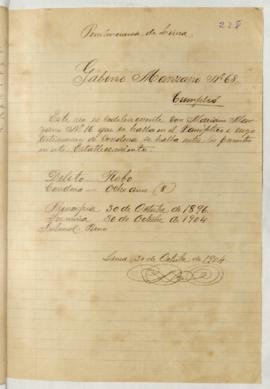 228
Penitenciaria de Lima
Gabino Manzano Nº 68.
Cumplió
Este reo es codelincuente con Mariano Man
zano Nº 16 que se halla en el Panóptico y cuyo
testimonio de condena se halla entre los
en este Establecimiento.
Delito Robo
Condena Ocho años (8)
Principia 30 de Octubre de 1896.
Termina 30 de Octubre de 1904
Lima 30 de Octubre de 1904